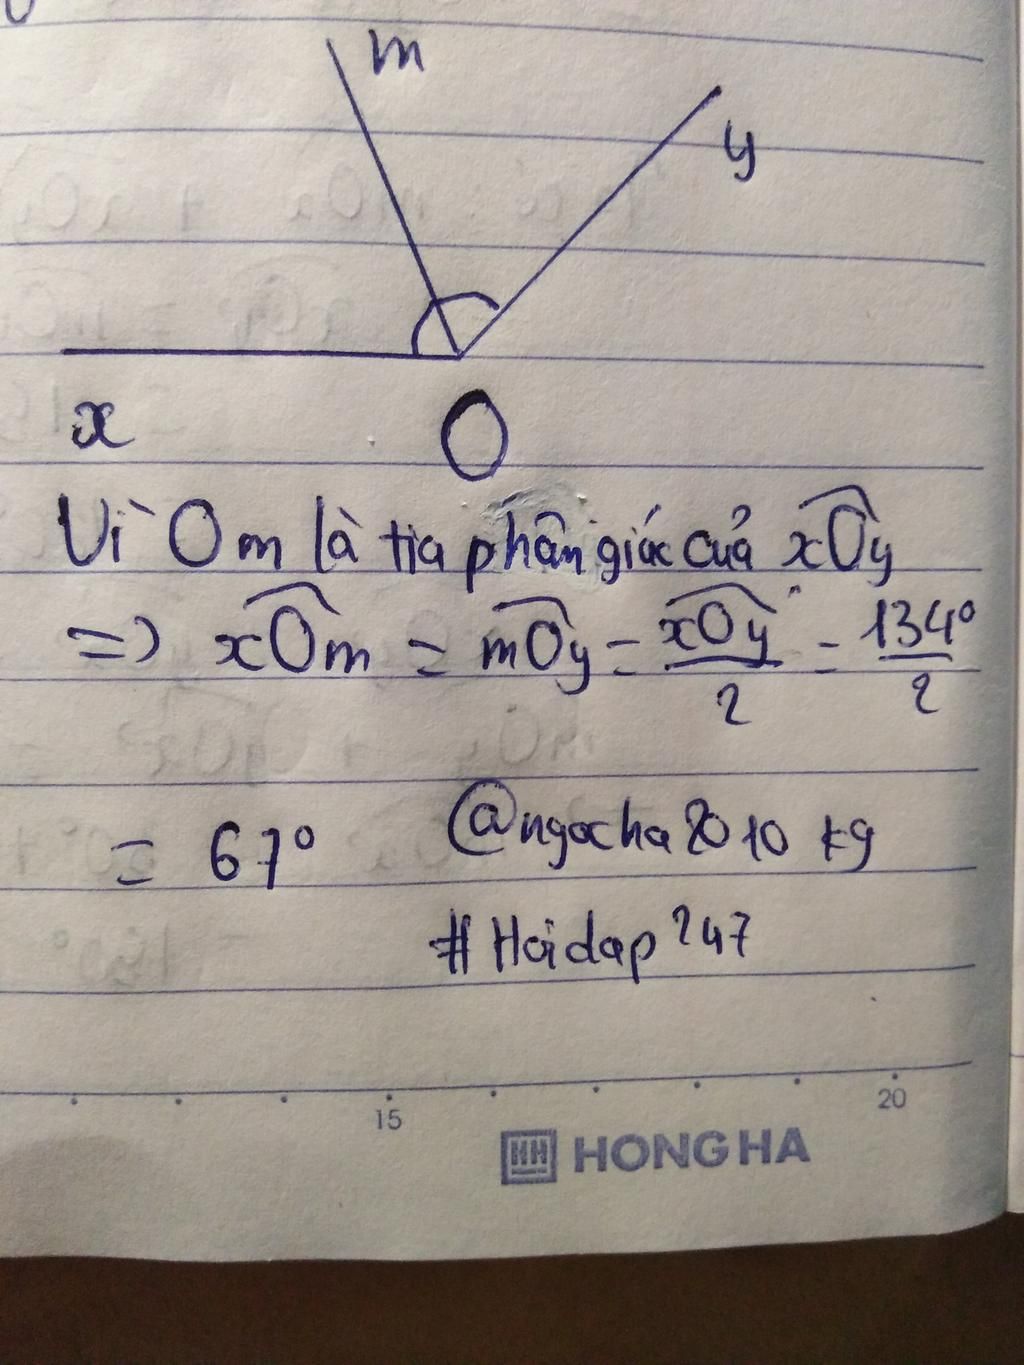 m
y
x
O
Vì Om là tia phân giác của xOy
=> xOm = mOy = xOy/2 = 134°/2
= 67° @ngocha2010kg
#Hoidap247
15 20
HH HONG HA